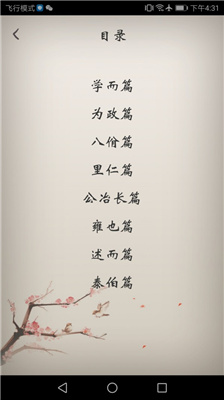 飞行模式 下午4:31
目录
学而篇
为政篇
八佾篇
里仁篇
公冶长篇
雍也篇
述而篇
泰伯篇